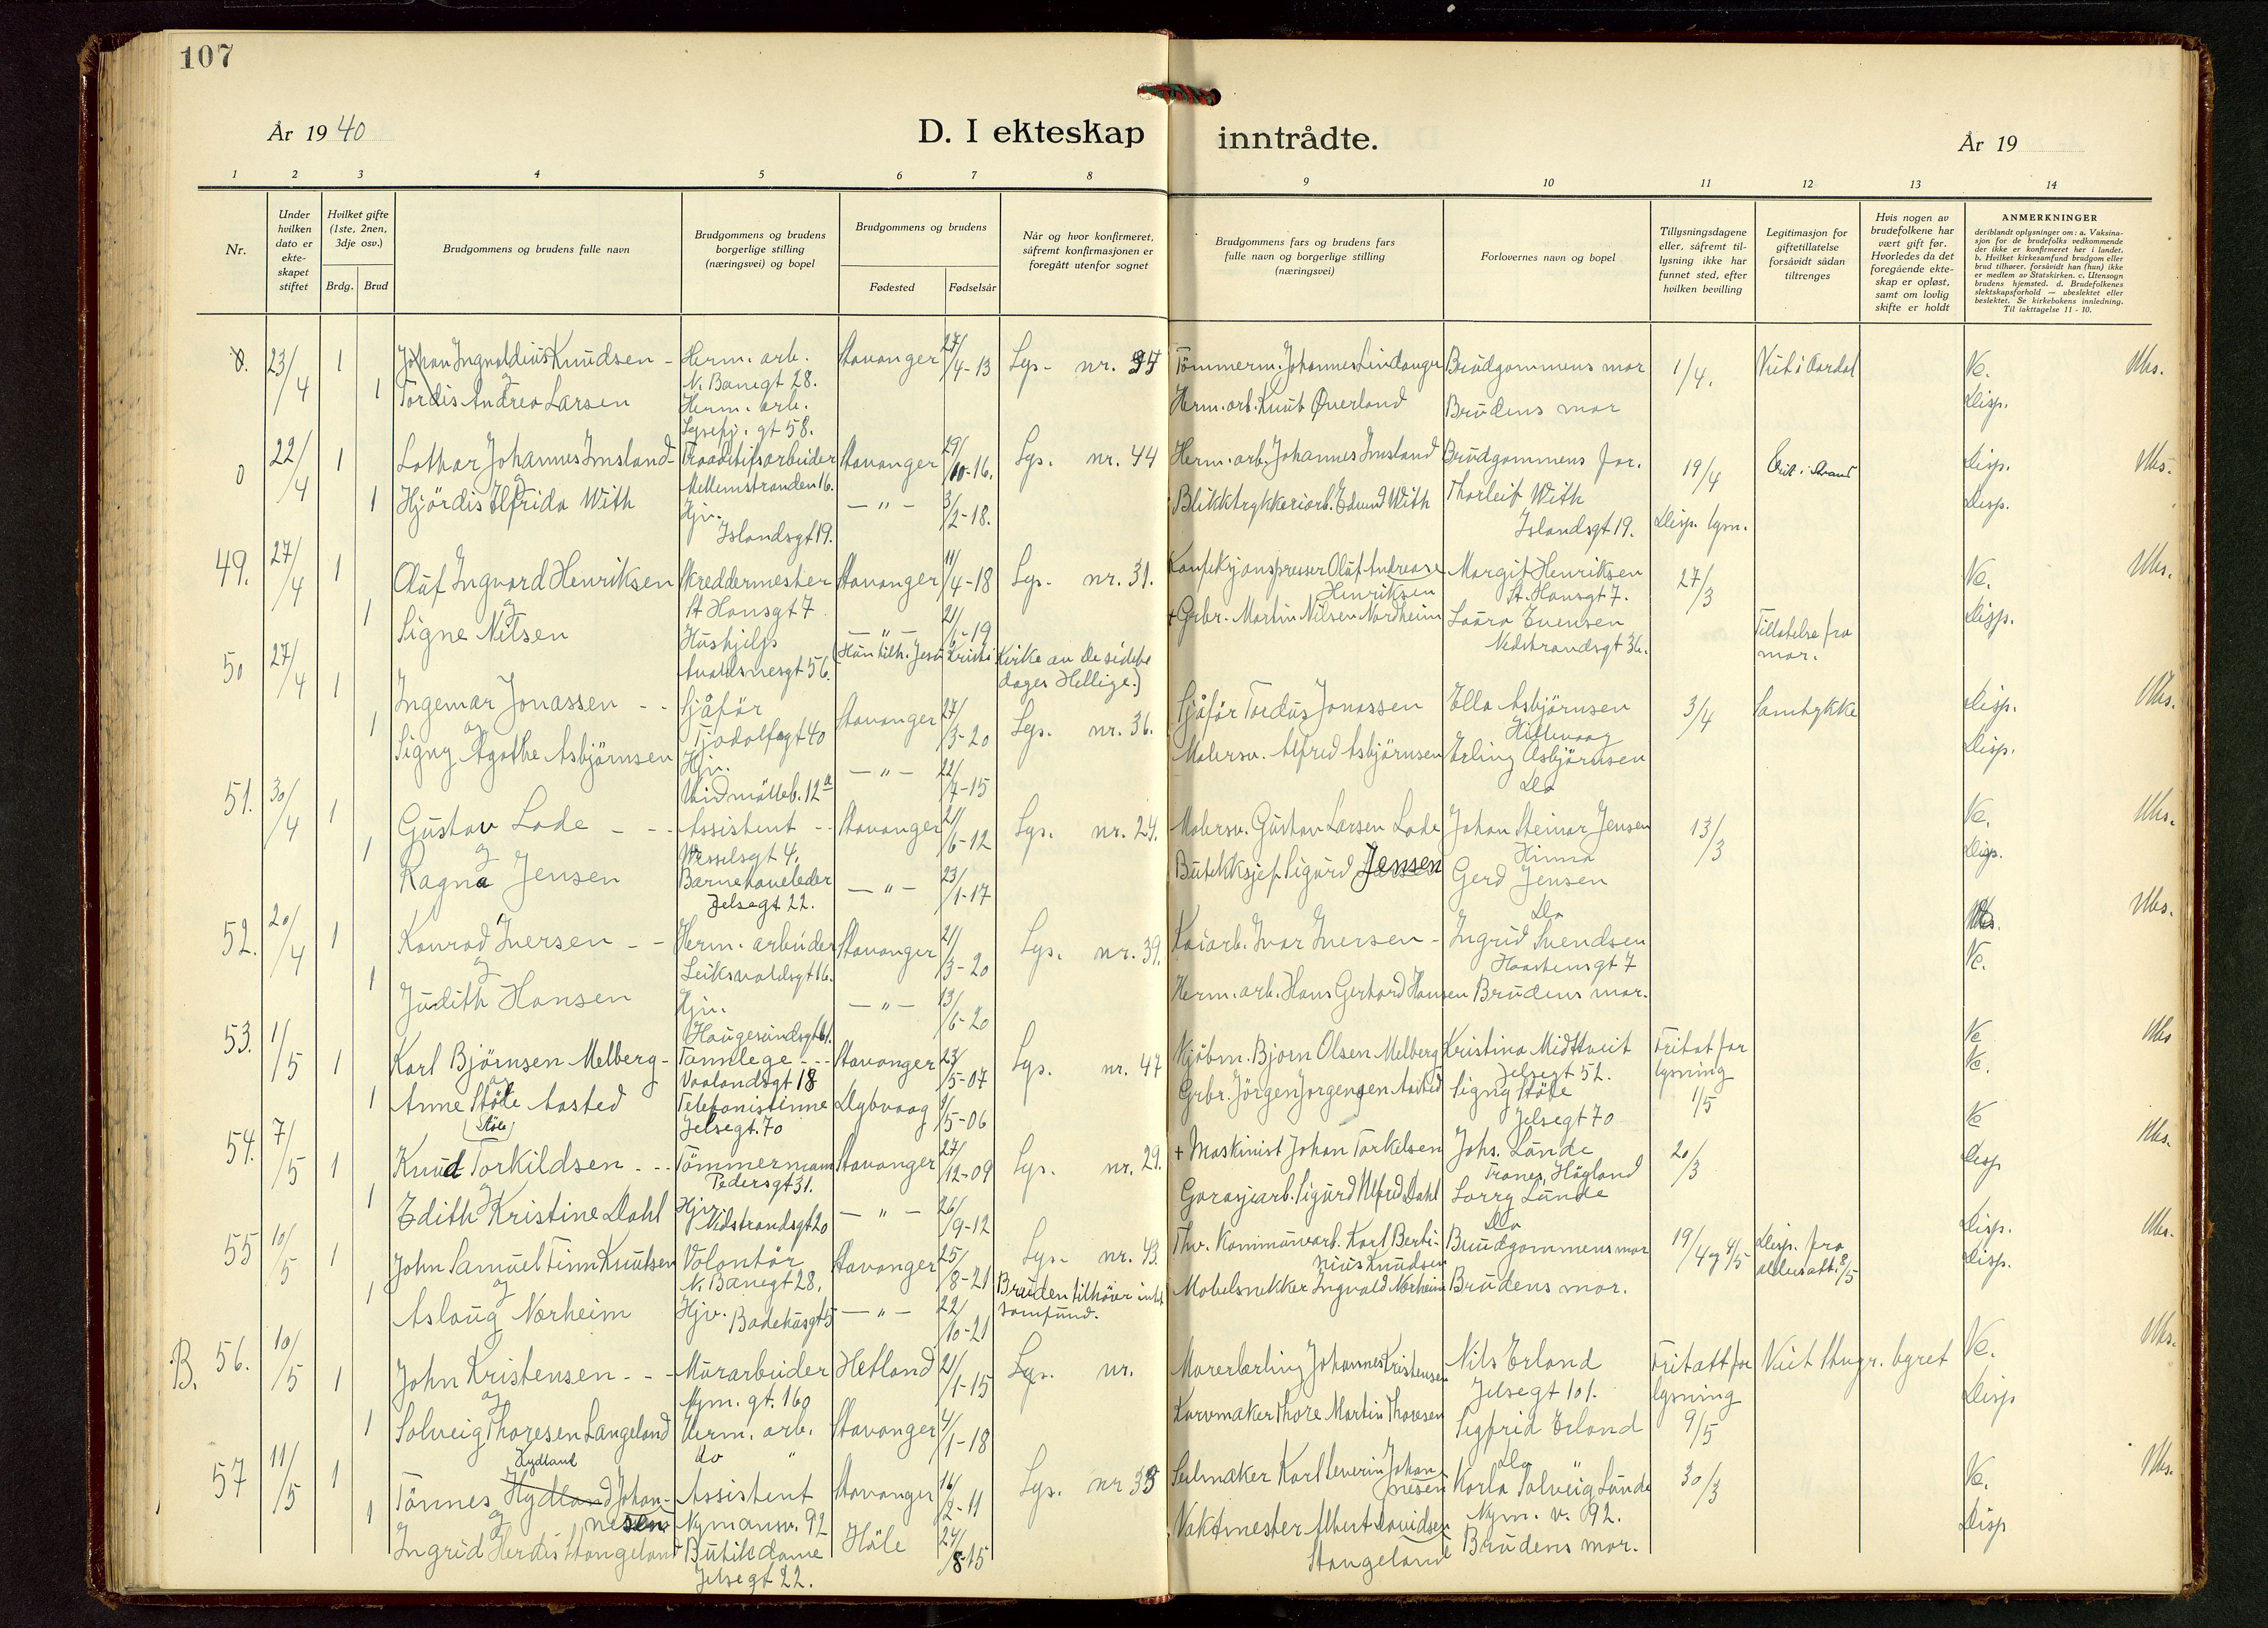 107
År 19 40
D. I ekteskap inntrådte.
År 19
1 2 3 4 5 6 7 8 9 10 11 12 13 14
Nr.
Under hvilken dato er ekte- skapet stiftet
Hvilket gifte (1ste, 2nen, 3dje osv.)
Brdg. Brud
Brudgommens og brudens fulle navn
Brudgommens og brudens borgerlige stilling (næringsvei) og bopel
Brudgommens og brudens
Fødested Fødselsår
Når og hvor konfirmeret, såfremt konfirmasjonen er foregått utenfor sognet
Brudgommens fars og brudens fars fulle navn og borgerlige stilling (næringsvei)
Forlovernes navn og bopel
Tillysningsdagene eller, såfremt til- lysning ikke har funnet sted, efter hvilken bevilling
Legitimasjon for giftetillatelse forsåvidt sådan tiltrenges
Hvis nogen av brudefolkene har vært gift før. Hvorledes da det foregående ekte- skap er opløst, samt om lovlig skifte er holdt
ANMERKNINGER
deriblandt oplysninger om: a. Vaksina- sjon for de brudefolks vedkommende der ikke er konfirmeret her i landet. b. Hvilket kirkesamfund brudgom eller brud tilhører, forsåvidt han (hun) ikke er medlem av Statskirken. c. Utensogn brudens hjemsted. d. Brudefolkenes slektskapsforhold — ubeslektet eller beslektet. Se kirkebokens innledning. Til iakttagelse 11 - 10.
23/4 1 Johan Ingvaldius Knudsen - Herm. arb. Stavanger 27/4-13 Lys- nr. Brudgommens mor 1/4. Ve. Ubs.
og N. Banegt 28.
1 Tordis Andrea Larsen Herm. arb. Herm. arb. Knut Øverland Brudens mor Disp.
Lysefj. gt 58.
0 22/4 1 Lothar Johannes Imsland - Stavanger 19/10-16. Lys. nr. 44 Herm. arb. Johannes Imsland Brudgommens far. 19/4 Disp. Ubs.
og Mellemstranden 16.
1 Hjördis Elfrida With Hjv. — " — 3/2-18. Blikktrykkeriarb. Edvind With Thorleif With Disp. lysn. Disp.
Islandsgt 19. Islandsgt 19.
49. 27/4 1 Oluf Ingvard Henriksen Skreddermester Stavanger 11/4-18 Lys- nr. 31. Konfeksjonspresser Oluf Andreas Margit Henriksen 27/3 Ve. Ubs.
og St Hansgt 7 Henriksen St. Hansgt 7.
1 Signe Nilsen Hushjelp — " — 21/6-19 + Grbr. Martin Nilsen Nordheim Laura Evensen Tillatelse fra mor. Disp.
Avaldsnesgt 56. (Hun tilh. Jesu Kristi Kirke av De sidste dages Hellige.) Nedstrandsgt 36.
50 27/4 1 Ingemar Jonassen - - Sjåfør Stavanger 27/3-20 Lys. nr. 36. Sjåfør Tordus Jonassen Ella Asbjørnsen 3/4 Samtykke Disp. Ubs.
og Tjodolfsgt 40 Hillevaag
1 Signy Agathe Asbjörnsen Hjv. — " — 22/7-15 Malersv. Alfred Asbjörnsen Erling Asbjörnsen Disp.
12a Do
51. 30/4 1 Gustav Lode - - - Assistent - - Stavanger 21/6-12 Lys. nr. 24. Malersv. Gustav Larsen Lode Johan Steinar Jensen 13/3 Ve. Ubs.
og Wesselsgt 4. Hinna
1 Ragna Jensen Barnehaveleder — " — 23/1-17 Butikksjef Sigurd Jensen Gerd Jensen Disp.
Jelsegt 22. Do
52. 20/4 1 Konrad Iversen - - Herm. arbeider Stavanger 21/3-20 Lys. nr. 39. Kaiarb. Ivar Iversen - Ingrid Svendsen Ubs.
og Leiksvoldsgt 16. Haasteinsgt 7
1 Judith Hansen Hjv. — " — 13/6-20 Herm. arb. Hans Gerhard Hansen Brudens mor. Ve.
Haugesundsgt 61.
53. 1/5 1 Karl Björnsen Melberg - Tannlege - - - Stavanger 23/5-07 Lys. nr. 47 Kjöbm. Bjorn Olsen Melberg Kristina Midttveit Fritat for lysning Ve Ubs
og Vaalandsgt 18 Jelsegt 52.
1 Anne Støle Aasted Telefonistinne Dybvaag 9/5-06 Grbr. Jörgen Jorgensen Aasted Signy Støle 1/5 Ve.
(Støle) Jelsegt. 70 Jelsegt 70
54. 7/5 1 Knud Torkildsen - - - Tömmermann Stavanger 27/12-09 Lys. nr. 29. + Maskinist Johan Torkilsen Johs. Lunde 20/3 Ve Ubs.
og Pedersgt 31. Tranes, Högland
1 Edith Kristine Dahl Hjv. — " — 26/9-12 Garasjearb. Sigurd Alfred Dahl Lorry Lunde Disp
Nedstrandsgt 20 Do
55 10/5 1 John Samuel Finn Knutsen Volontør Stavanger 25/8-21 Lys- nr. 43. Thv. Kommunearb. Karl Berti- Brudgommens mor 19/4 og 4/5 Disp. fra 8/5 Disp. Ubs.
og N. Banegt 28. nius Knudsen
1 Aslaug Nærheim Hjv. Badehusgt 5 — " — 22/10-21 Bruden tilhører intet samfund. Mobelsnekker Ingvald Nærheim Brudens mor. Disp.
B. 56. 10/5 1 John Kristensen - - - Murarbeider Hetland 21/1-15 Lys. nr. Murerlærling Johannes Kristensen Nils Erland Fritatt for lysning Ve. Ubs.
og Nym. gt. 160 Jelsegt 101.
1 Solveig Thoresen Langeland Herm. arb. Stavanger 4/1-18 Kurvmaker Thore Martin Thoresen Sigfrid Erland 9/5 Disp
do " Do
57 11/5 1 Tönnes Hydland Johan- Assistent Stavanger 16/2-11 Lys. nr 35 Seilmaker Karl Severin Johan- Karla Solveig Lunde 30/3 Ve. Ubs.
Hydland
og nesen Nymansv. 92 nesen Nym. v. 92.
1 Ingrid Herdis Stangeland Butikdame Höle 24/8-15 Vaktmester Albert Davidsen Brudens mor. Disp
Jelsegt 22. Stangeland